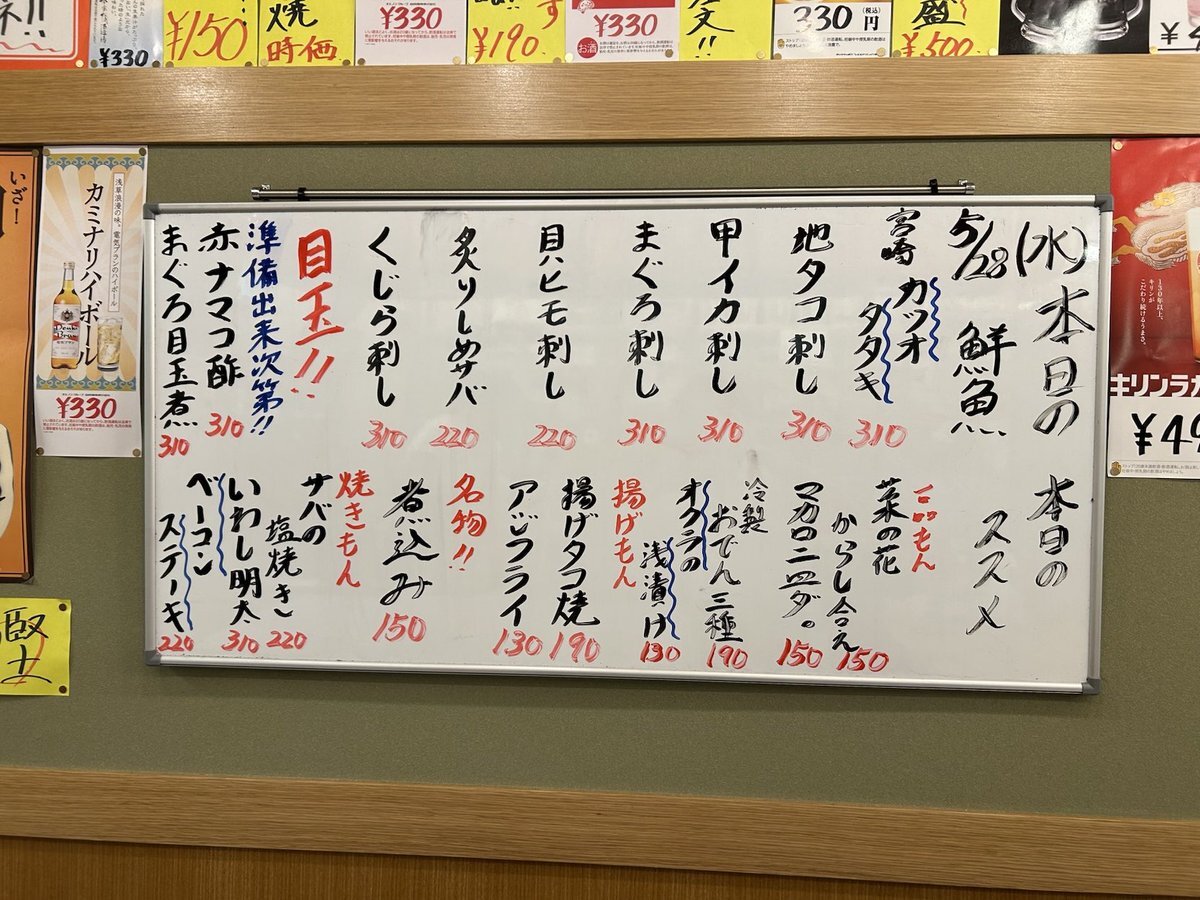 ¥330
¥150
焼
時価
¥330
¥190
す
¥330
お酒
文!!
330円
(税込)
盛
¥500
いざ!
浅草浪漫の味。電気ブランのハイボール
カミナリハイボール
¥330
130年以上、
こだわり続けるうまさ。
キリンラガ
¥49
本日の
5/28(水)
鮮魚
宮崎
カツオ
タタキ
310
地タコ刺し
310
甲イカ刺し
310
まぐろ刺し
310
貝ヒモ刺し
220
炙りしめサバ
220
くじら刺し
310
目玉!!
準備出来次第!!
赤ナマコ酢
310
まぐろ目玉煮
310
本日の
ススメ
一品もん
菜の花
からし合え
150
マカロニサラダ。
150
冷製
おでん三種
190
オクラの
浅漬け
190
揚げもん
揚げタコ焼
190
アジフライ
130
名物!!
煮込み
150
焼きもん
サバの
塩焼き
220
いわし明太
310
ベーコン
ステーキ
220